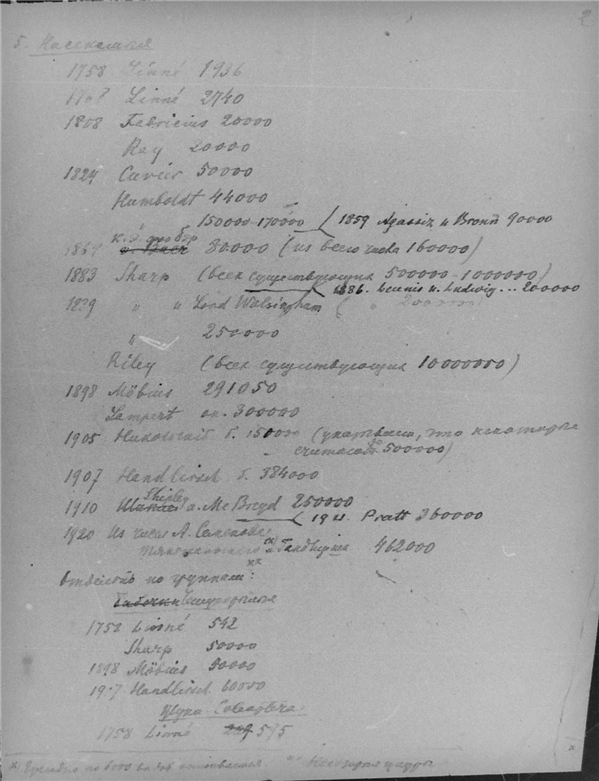 2
5. Насекомыя
1758 Linné 1936
Linné 2740
1808 Fabricius 20000
Ray 20000
1824 Cuvier 50000
Humboldt 44000
150000-170000 1859 Agassiz и Bronn 90000
30000 (из всего числа 160000)
1883 Sharp (всех существующих 500000-1000000)
1886. Leunis u. Ludwig... 200000
" и Lord Walsingham ( " 2000000)
" 250000
Riley (всех существующих 10000000)
1898 Möbius 291050
Lampert ок. 300000
1905 б. 150000 (указывая, что некоторые
считают 500000)
1907 Handlirsch б. 384000
1910 Shipley a. Mc Bryd 250000
1911 Pratt 360000
1920 Из числа А. Семенова
462000
Отдельно по группам:
Бабочки Чешуекрылыя
1758 Linné 542
Sharp 50000
1898 Möbius 50000
1907 Handlirsch 60000
Жуки. Coleoptera
1758 Linné 575